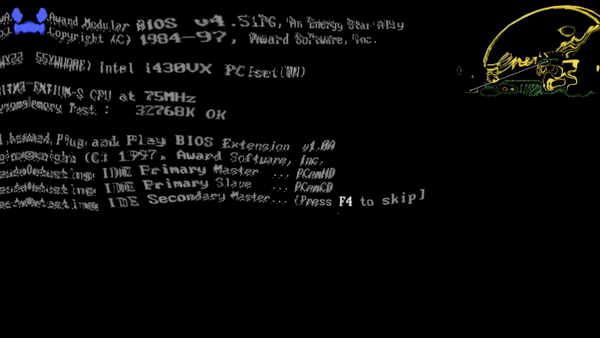 Award Modular BIOS v4.51PG, An Energy Star Ally
Copyright (C) 1984-97, Award Software, Inc.
Intel i430VX PCIset(TM)
CPU at 75MHz
Test : 32768K OK
Award Plug and Play BIOS Extension v1.0A
(C) 1997, Award Software, Inc.
IDE Primary Master ... PCemHD
IDE Primary Slave ... PCemCD
IDE Secondary Master... [Press F4 to skip]